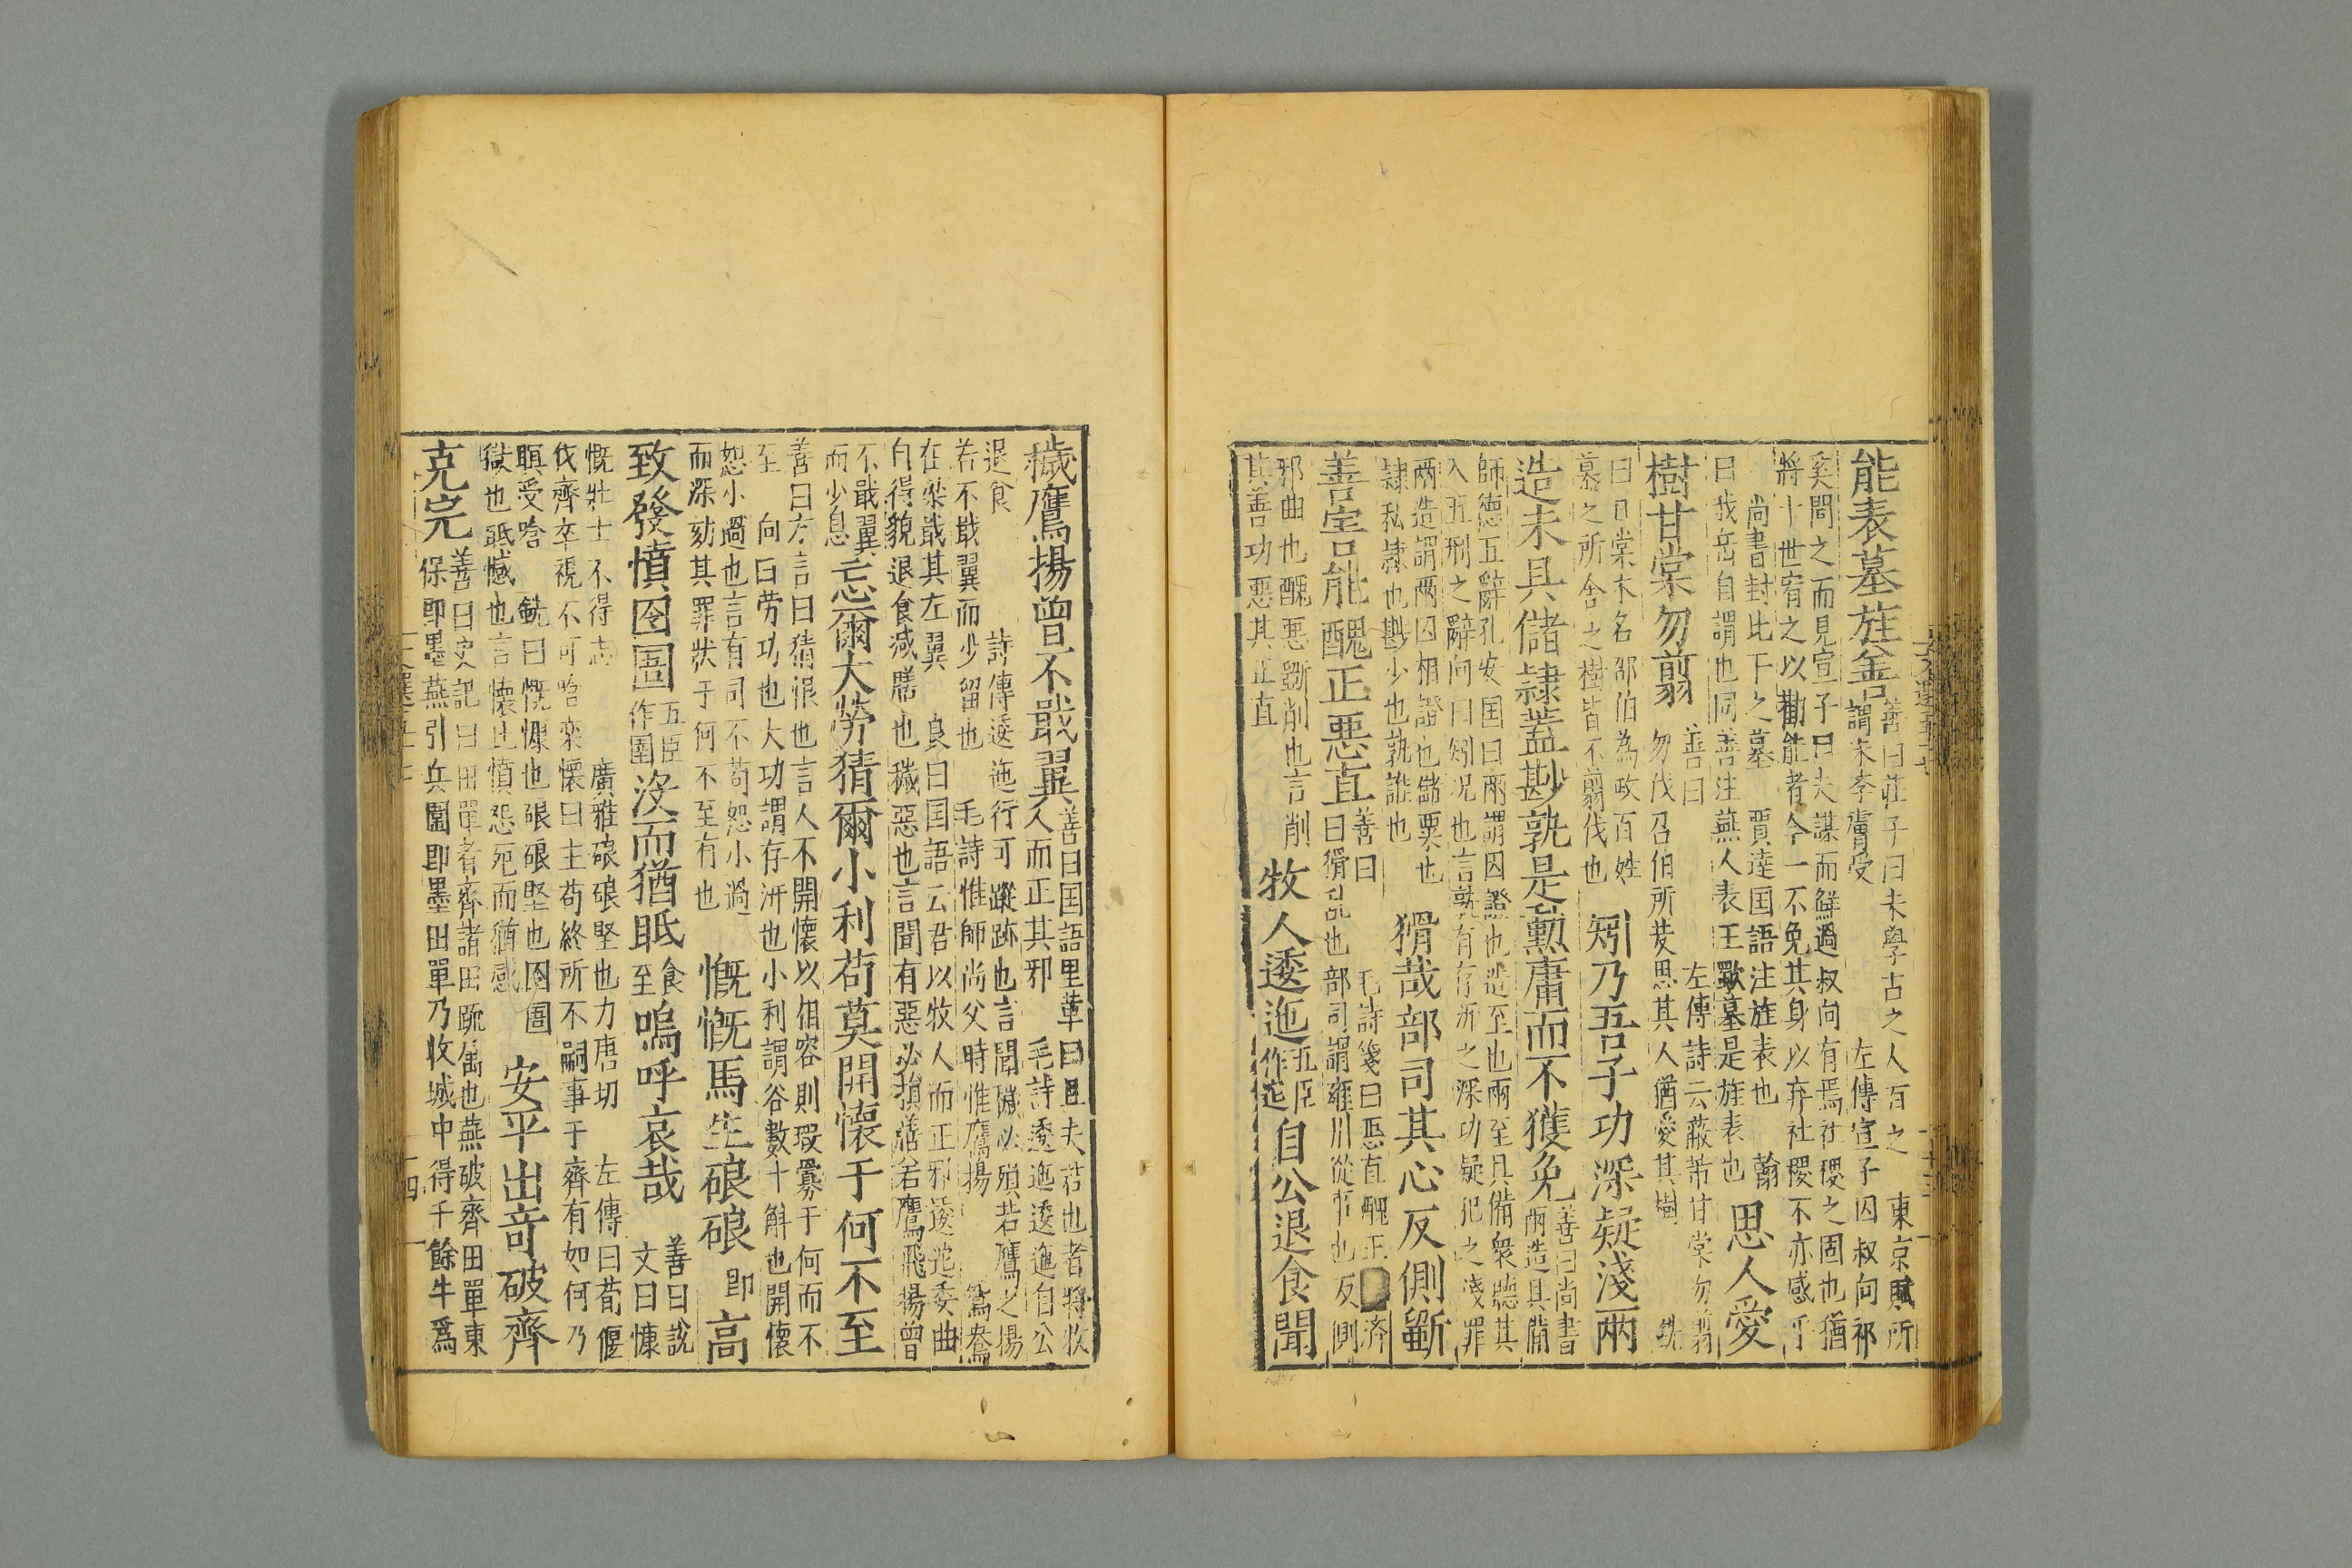 能表墓旌善善曰莊子曰末學古之人百之　東京賦所
謂末李膚受　左傳宣子囚叔向祁
奚聞之而見宣子曰夫謀而鮮過叔向有焉社稷之固也猶
將十世宥之以勸能者今一不免其身以弃社稷不亦惑乎
尚書封比干之墓　賈逵国語注旌表也　翰
曰我岳自謂也同善注燕人表王歜墓是旌表也　思人愛
樹甘棠勿翦善曰　左傳詩云蔽芾甘棠勿翦
勿伐召伯所茇思其人猶愛其樹　銑
曰甘棠木名邵伯為政百姓
慕之所舍之樹皆不翦伐也　矧乃吾子功深疑淺兩
造未具儲隷蓋尠孰是勲庸而不獲免善曰尚書
兩造具備
師德五辭孔安国曰兩謂囚證也造至也兩至具備衆聽其
入五刑之辭向曰矧况也言孰有存汧之深功疑犯之淺罪
兩造謂兩囚相證也儲粟也
隷私隷也尠少也孰誰也　猾哉部司其心反側斲
善害能醜正惡直善曰　毛詩箋曰惡直醜正　濟
曰猾乱也部司謂雍川從事也反側
邪曲也醜惡斲削也言削
其善功惡其正直　牧人逶迤五臣
作迱自公退食聞
穢鷹揚曾不戢翼善曰国語里革曰且夫君也者將牧
人而正其邪　毛詩逶迤逶迤自公
退食　詩傳逶迤行可蹤跡也言聞穢必殞若鷹之揚
若不戢翼而少留也　毛詩惟師尚父時惟鷹揚　鴛鴦
在梁戢其左翼　良曰国語云君以牧人而正邪逶迤委曲
自得貌退食減膳也穢惡也言聞有惡必損善若鷹飛揚曾
不戢翼
而少息忘爾大勞猜爾小利苟莫開懷于何不至
善曰方言曰猜恨也言人不開懷以相容則瑕釁于何而不
至　向曰劳功也大功謂存汧也小利謂谷數十斛也開懷
恕小過也言有司不苟恕小過
而深劾其罪状于何不至有也　慨慨馬生硠硠即高
致發憤囹圄五臣
作圉沒而猶眂食
至嗚呼哀哉善曰說
文曰慷
慨壮士不得志　廣雅硠硠堅也力唐切　左傳曰荀偃
伐齊卒視不可唅欒懷曰主苟終所不嗣事于齊有如何乃
瞑受唅　銑曰慨慨慷也硠硠堅也囹圄
獄也眂憾也言懷此憤怨死而猶感　安平出奇破齊
克完善曰史記曰田單者齊諸田踈属也燕破齊田單東
保即墨燕引兵圍即墨田單乃收城中得千餘牛爲